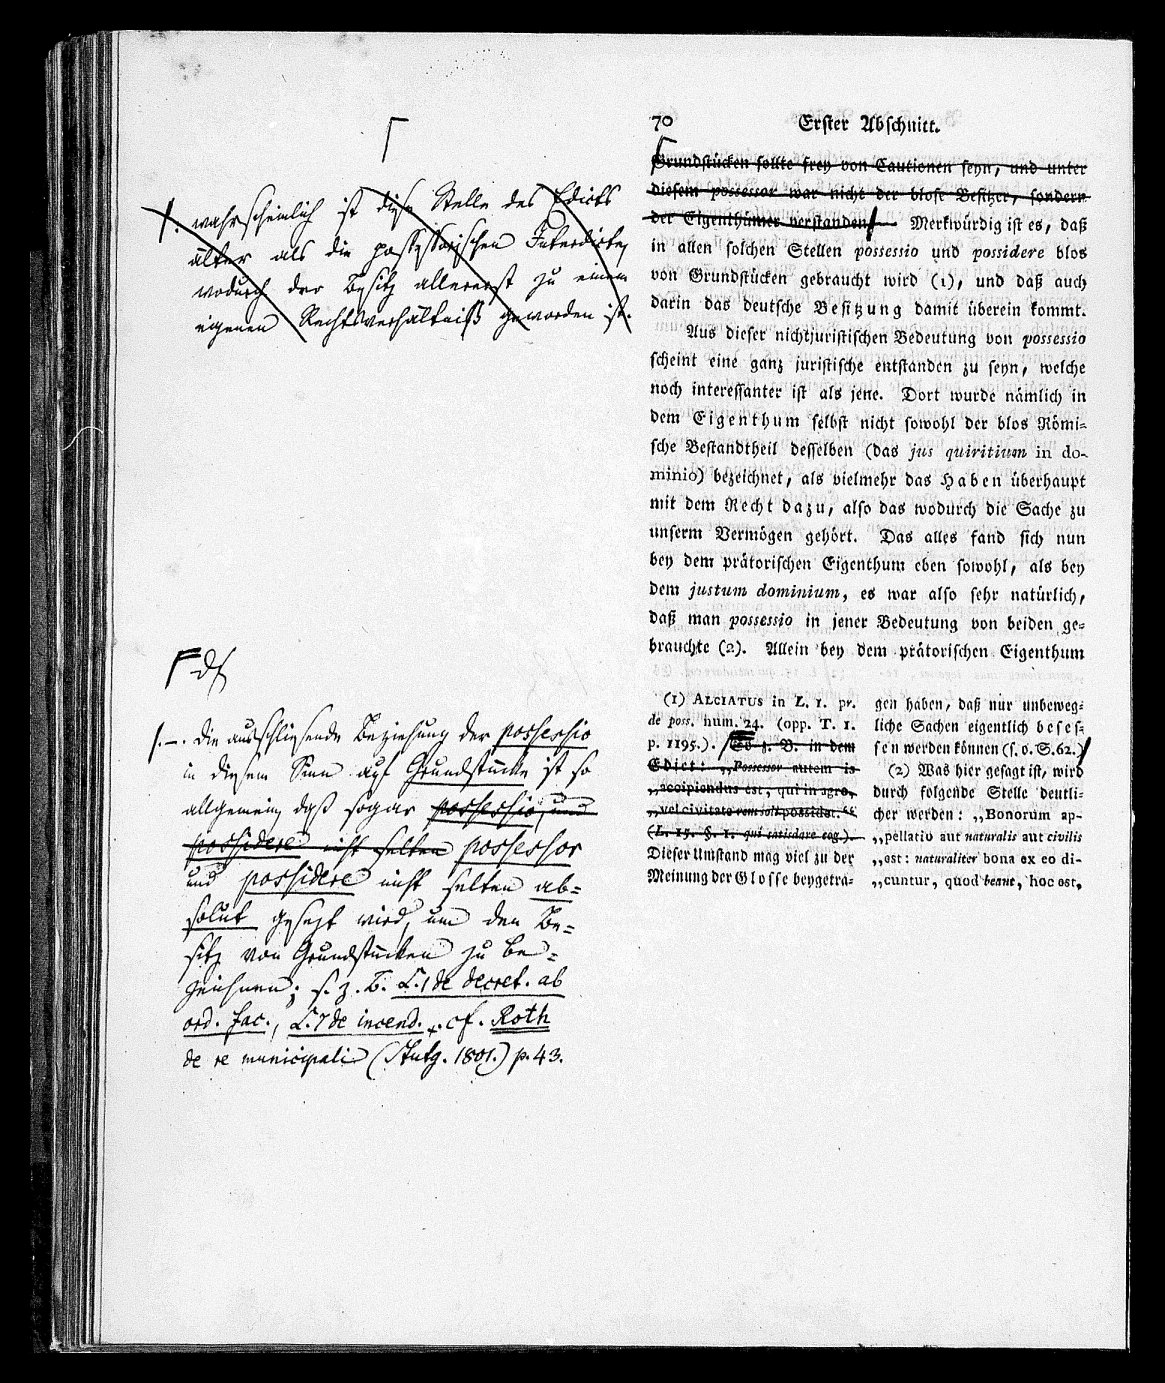 70 Erster Abschnitt.
Grundstücken sollte frey von Cautionen seyn, und unter
diesem possessor war nicht der blose Besitzer, sondern
der Eigenthümer verstanden. Merkwürdig ist es, daß
in allen solchen Stellen possessio und possidere blos
von Grundstücken gebraucht wird (1), und daß auch
darin das deutsche Besitzung damit überein kommt.
Aus dieser nichtjuristischen Bedeutung von possessio
scheint eine ganz juristische entstanden zu seyn, welche
noch interessanter ist als jene. Dort wurde nämlich in
dem Eigenthum selbst nicht sowohl der blos Römi-
sche Bestandtheil desselben (das jus quiritium in do-
minio) bezeichnet, als vielmehr das Haben überhaupt
mit dem Recht dazu, also das wodurch die Sache zu
unserm Vermögen gehört. Das alles fand sich nun
bey dem prätorischen Eigenthum eben sowohl, als bey
dem justum dominium, es war also sehr natürlich,
daß man possessio in jener Bedeutung von beiden ge-
brauchte (2). Allein bey dem prätorischen Eigenthum
(1) ALCIATUS in L. 1. pr.
de poss. num. 24. (opp. T. 1.
p. 1195.). So z. B. in dem
Edict: „Possessor autem is
„accipiendus est, qui in agro,
„vel civitate rem soli possidet.“
(L. 15. §. 1. qui satisdare cog.).
Dieser Umstand mag viel zu der
Meinung der Glosse beygetra-
gen haben, daß nur unbeweg-
liche Sachen eigentlich beses-
sen werden können (s. o. S. 62.)
(2) Was hier gesagt ist, wird
durch folgende Stelle deutli-
cher werden: „Bonorum ap-
„pellatio aut naturalis aut civilis
„est: naturaliter bona ex eo di-
„cuntur, quod beant, hoc est,
wahrscheinlich ist diese Stelle des Edicts
älter als die possessorischen Interdicte,
wodurch der Besitz allererst zu einem
eigenen Rechtsverhältniß geworden ist.
die ausschließende Beziehung der possessio
in diesem Sinn auf Grundstücke ist so
allgemein, daß sogar possessio, und
possidere nicht selten possessor
und possidere nicht selten ab-
solut gesetzt wird, um den Be-
sitz von Grundstücken zu be-
zeichnen; s. z. B. L. 1 de decret. ab
ord. fac., L. 7 de incend. cf. Roth
de re municipali (Stutg. 1801.) p. 43.